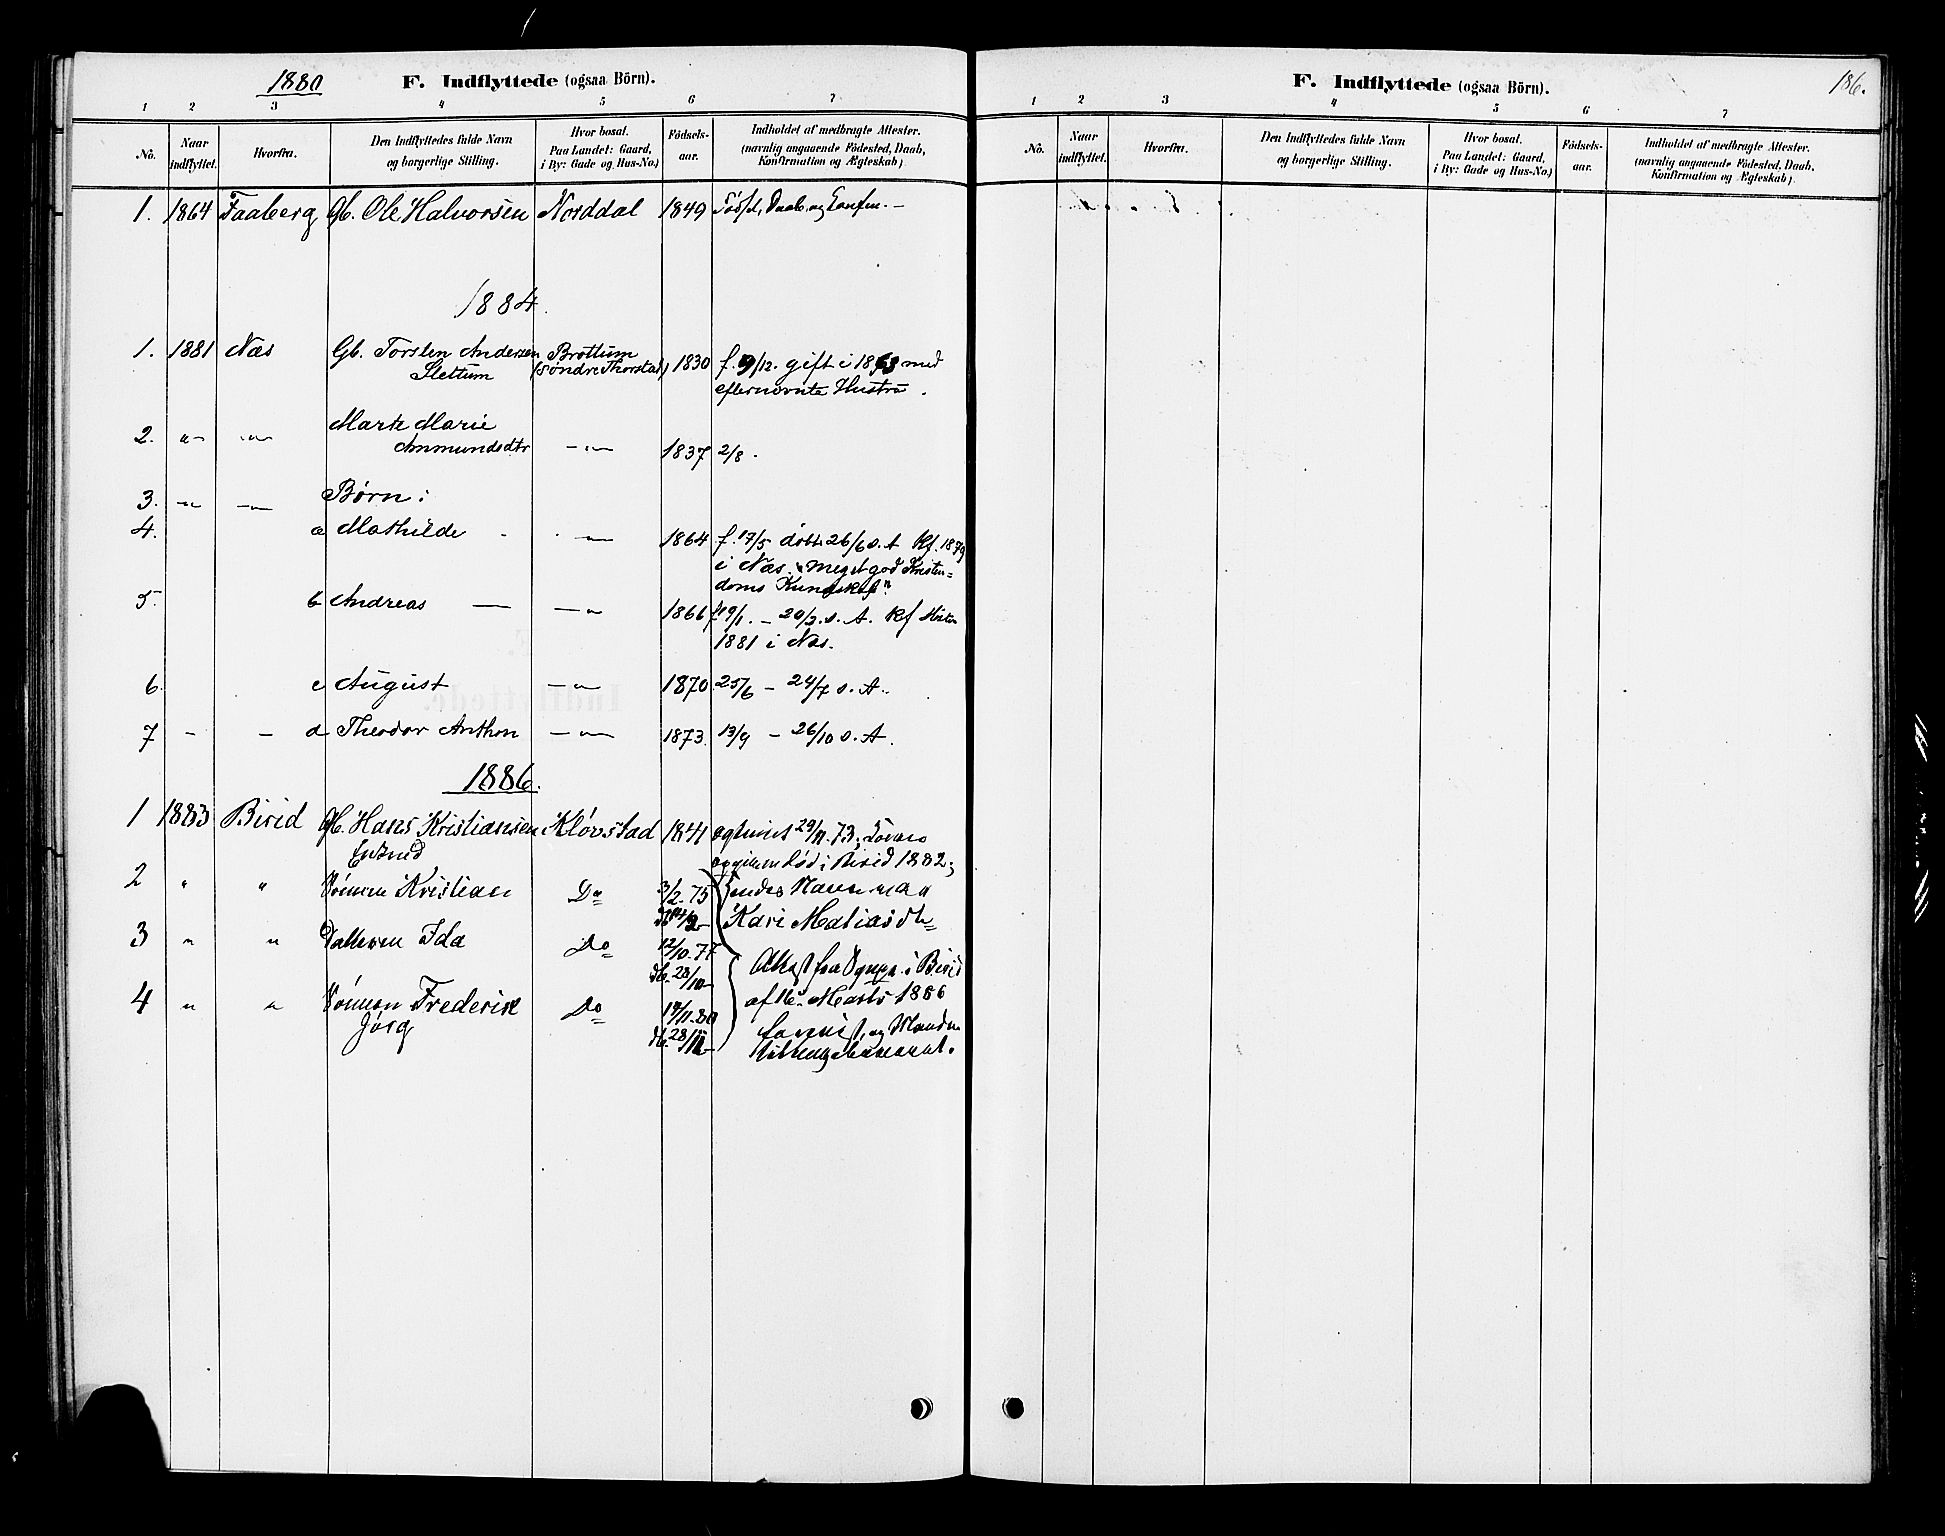 1880 F. Indflyttede (ogsaa Börn).
1 2 3 4 5 6 7
No. Naar indflyttet. Hvorfra. Den Indflyttedes fulde Navn og borgerlige Stilling. Hvor bosat. Paa Landet: Gaard, i By: Gade og Hus-No.) Födsels-aar. Indholdet af medbragte Attester. (navnlig angaaende Födested, Daab, Konfirmation og Ægteskab)
1. 1864 Faaberg Gb. Ole Halvorsen Norddal 1849 Daab. og
1884.
1. 1881 Næs Gb. Torsten Andersen Brøttum 1830 f. 9/12. gift i 1863 med
Slettum (Søndre Thorstad) efternævnte Hustru.
2. Marte Marie
Ammundsdtr 1837 2/8.
3. Børn:
4. a Mathilde 1864 f. 17/5 døbt 26/6 s. A Kf. 1879
i Næs. "meget god Kristen=
doms Kundskab"
5. b Andreas 1866 f 19/1. – 20/3. s. A. Kf
1881 i Næs.
6 c August 1870 25/6 – 24/7 s. A.
7 - - d Theodor Anthon 1873. 13/9 – 26/10 s. A.
1886.
1 1883 Birid Gb. Hans Kristiansen Kløvstad 1841 29/11. 73;
i Birid 1882;
2 " " Sønnen Kristian Do 3/2. 75 Navn var
Kari Matiasdtr
3 " " Datteren Ida Do 12/10. 77
db. 28/10 Attest fra i Birid
4 " " Sønnen Frederik Do 17/11. 80 af 16 Marts 1886
Jørg db. 28/11 og
F. Indflyttede (ogsaa Börn). 186.
1 2 3 4 5 6 7
No. Naar indflyttet. Hvorfra. Den Indflyttedes fulde Navn og borgerlige Stilling. Hvor bosat. Paa Landet: Gaard, i By: Gade og Hus-No.) Födsels-aar. Indholdet af medbragte Attester. (navnlig angaaende Födested, Daab, Konfirmation og Ægteskab)